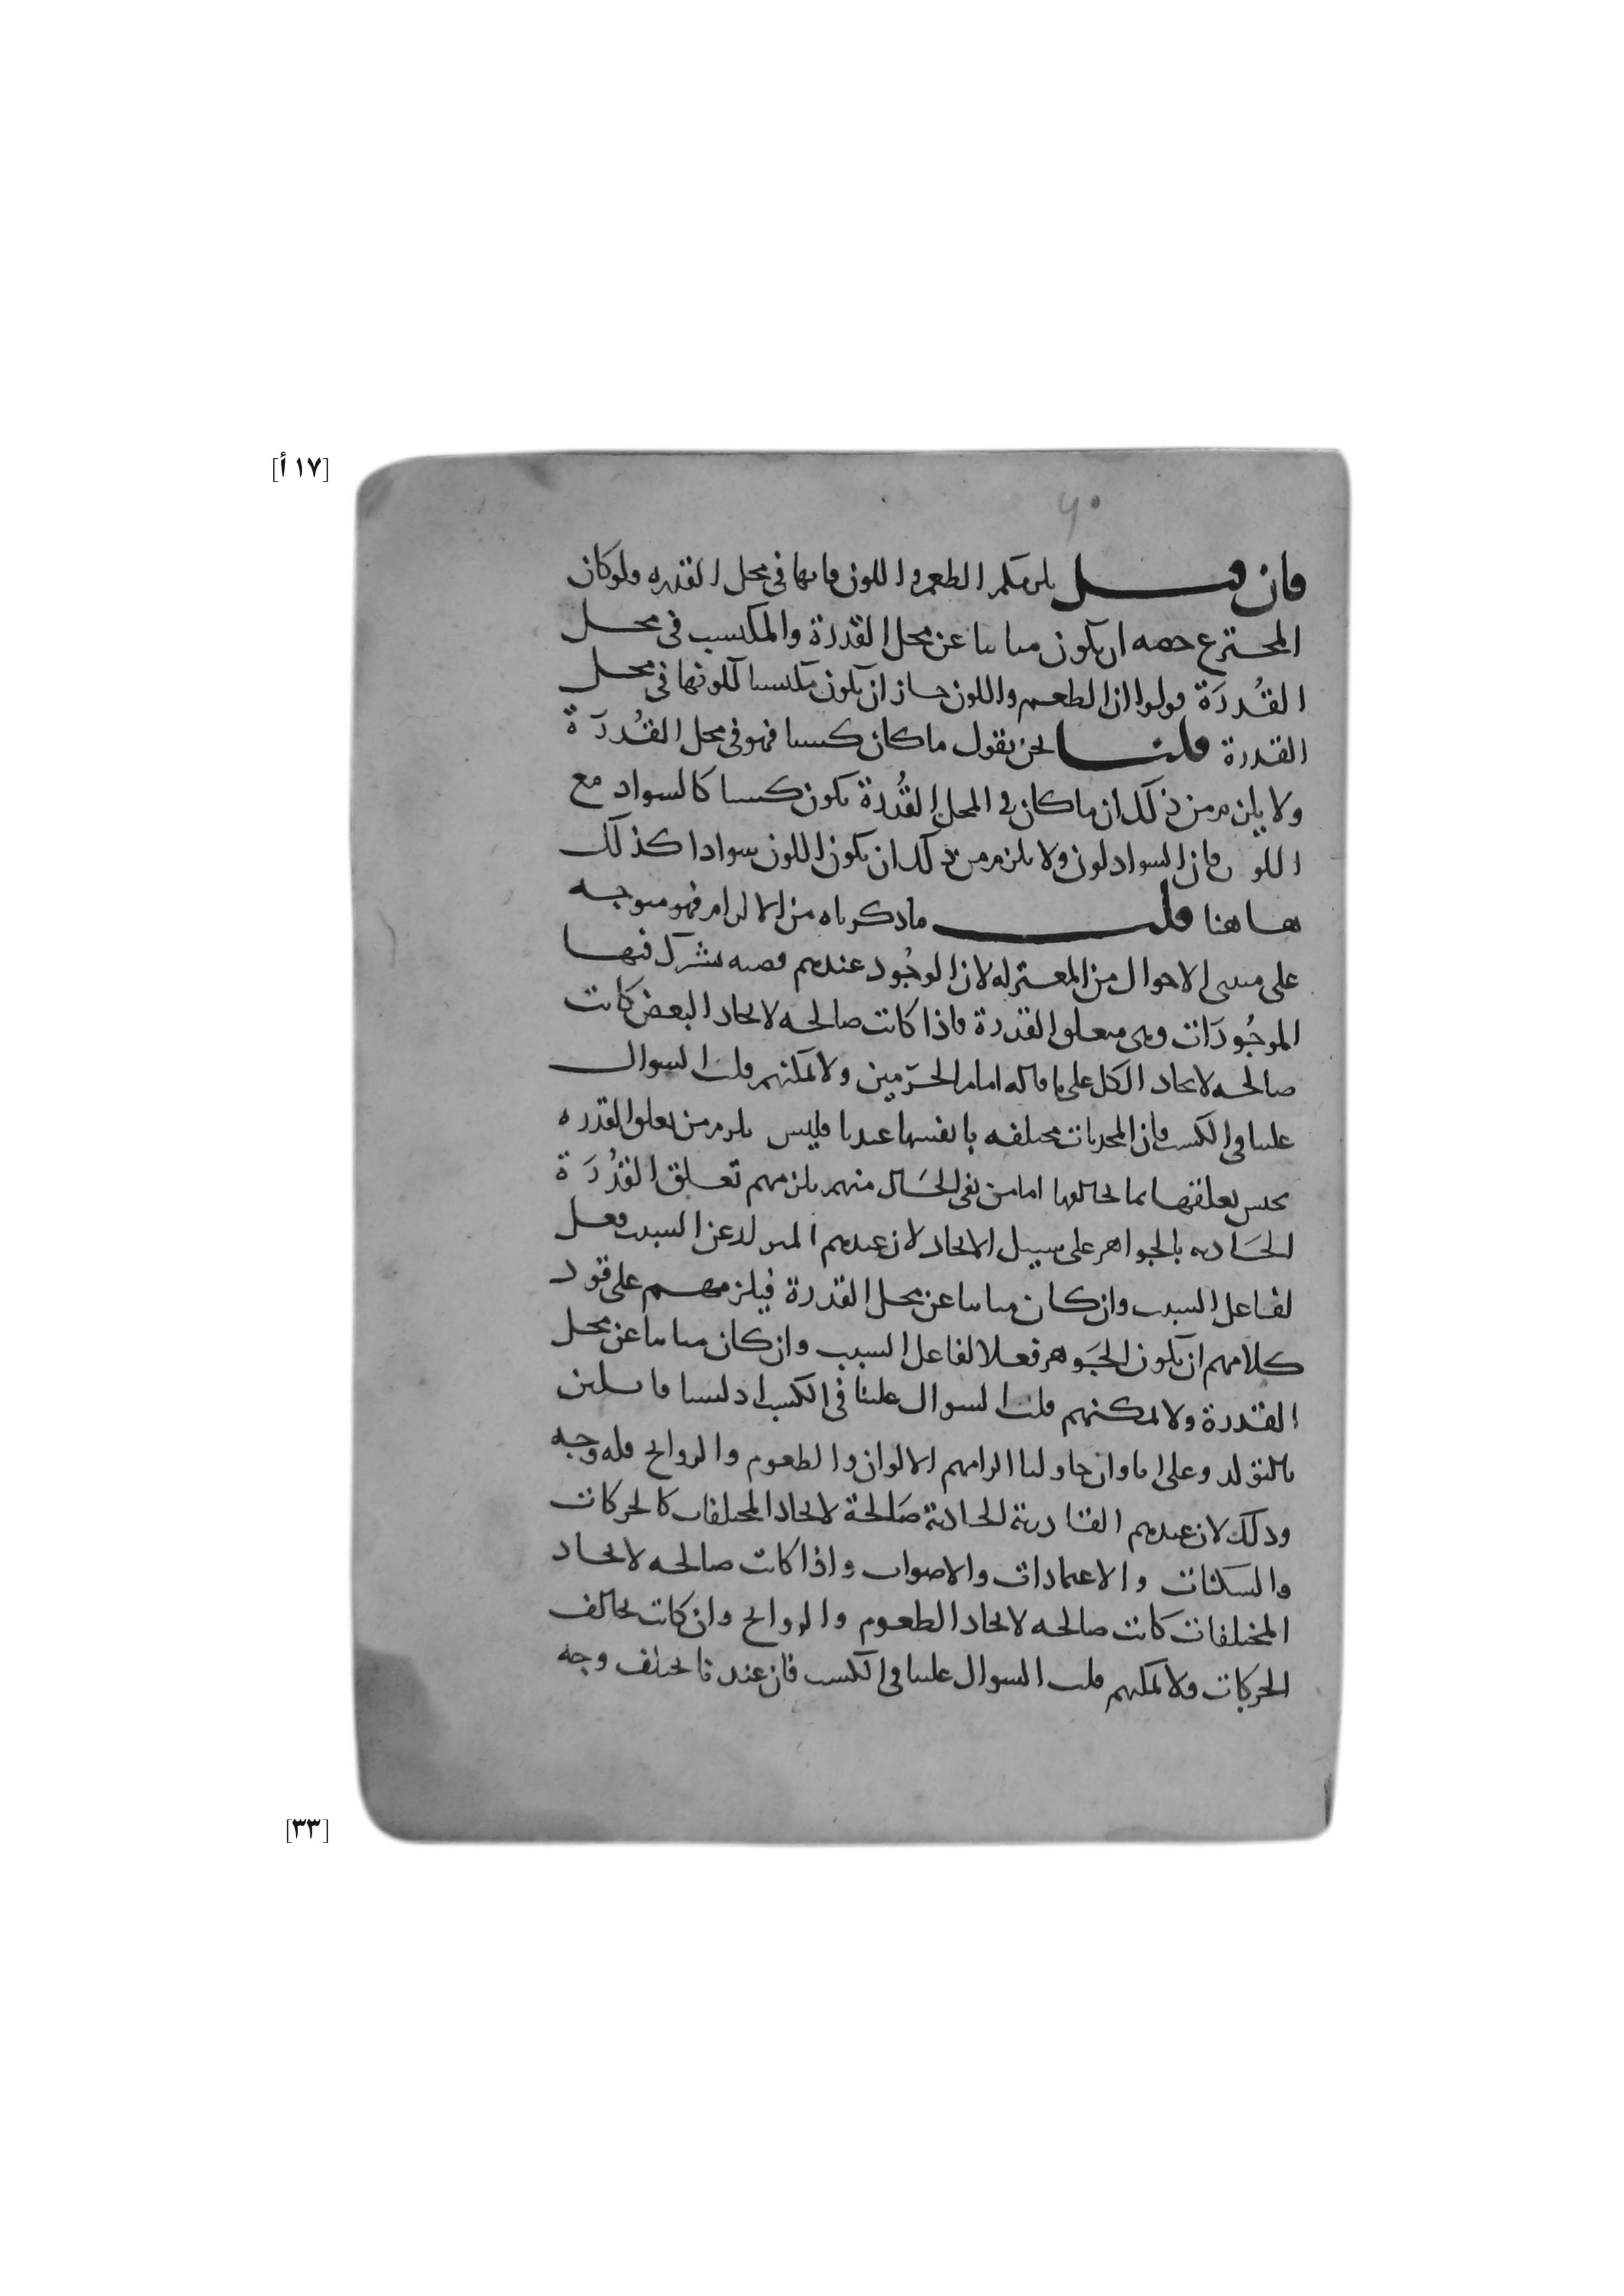 [١٧ أ]
٤٠
فان قيل يلزمكم الطعم واللون فانها في محل القدره ولو كان
المخترع حقه ان يكون مباينا عن محل القدرة والمكتسب في محل
القُدرَة قولوا ان الطعم واللون جاز ان يكون مكتسبا لكونها في محل
القدرة قلنا نحن نقول ما كان كسبا فهو في محل القُدرَة
ولا يلزم من ذلك ان ما كان في المحل القُدرة يكون كسبا كالسواد مع
اللون فان السواد لون ولا يلزم من ذلك ان يكون اللون سوادا كذلك
هاهنا قلت ما ذكرناه من الالزام فهو متوجه
على مثبتي الاحوال من المعتزله لان الوجُود عندهم قضيه تشترك فيها
الموجُودَات وهي متعلق القدرة فاذا كانت صالحه لايجاد البعض كانت
صالحه لايجاد الكل على ما قاله امام الحرَمين ولا يمكنهم قلب السوال
علينا في الكسب فان المحدثات مختلفه بانفسها عندنا فليس يلزم من تعلق القدره
بجنس تعلقها بما يخالفها اما من نفى الحَال منهم يلزمهم تعلق القُدرَة
الحَادثه بالجواهر على سبيل الايجاد لان عندهم المتولد عن السبب فعل
لفاعل السبب وان كان مباينا عن محل القدرة فيلزمهم على قود
كلامهم ان يكون الجَوهر فعلا لفاعل السبب وان كان مباينا عن محل
القدرة ولا يمكنهم قلب السوال علينا في الكسب اذ لسنا قايلين
بالتولد وعلى انا وان حاولنا الزامهم الالوان والطعوم والروايح فله وجه
وذلك لان عندهم القادرية الحادثة صَالحة لايجاد المختلفات كالحركات
والسكنات والاعتمادات والاصوات واذا كانت صالحه لايجاد
المختلفات كانت صالحه لايجاد الطعوم والروايح وان كانت تخالف
الحركات ولا يمكنهم قلب السوال علينا في الكسب فان عندنا تختلف وجه
[٣٣]